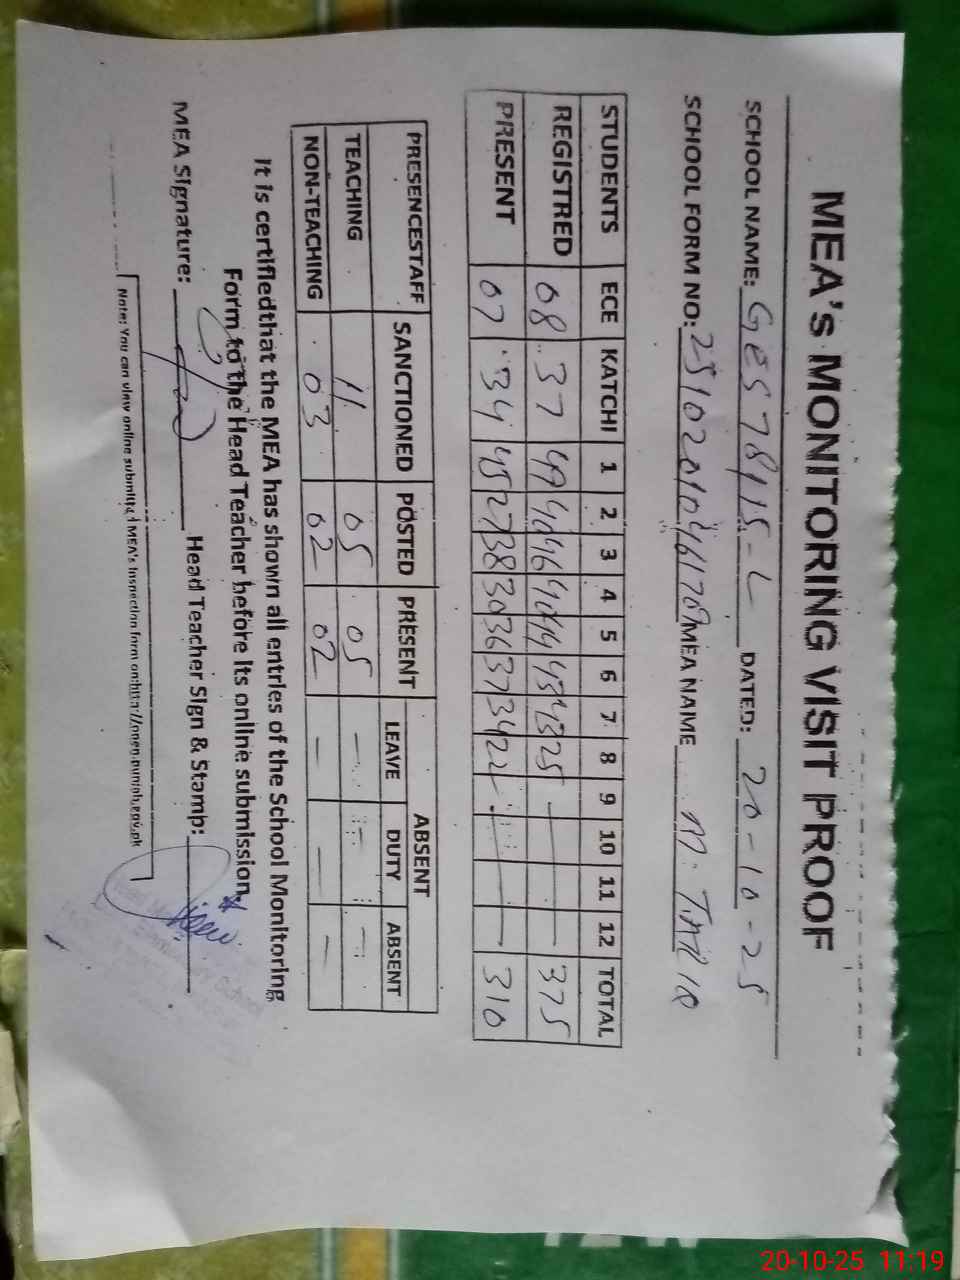 MEA's MONITORING VISIT PROOF
SCHOOL NAME: GES 78/15-L DATED: 20-10-25
SCHOOL FORM NO: MEA NAME M. TAHIR
STUDENTS ECE KATCHI 1 2 3 4 5 6 7 8 9 10 11 12 TOTAL
REGISTRED 08 37 49 40 46 40 44 43 43 25 — 375
PRESENT 07 34 45 27 38 30 36 37 34 22 — 310
PRESENCESTAFF SANCTIONED POSTED PRESENT ABSENT
LEAVE DUTY ABSENT
TEACHING 11 05 05 — — —
NON-TEACHING 03 02 02 — — —
It is certifiedthat the MEA has shown all entries of the School Monitoring
Form to the Head Teacher before its online submission.
MEA Signature: Head Teacher Sign & Stamp:
Note: You can view online submitted MEA's Inspection form on:http://open.punjab.gov.pk
20-10-25 11:19